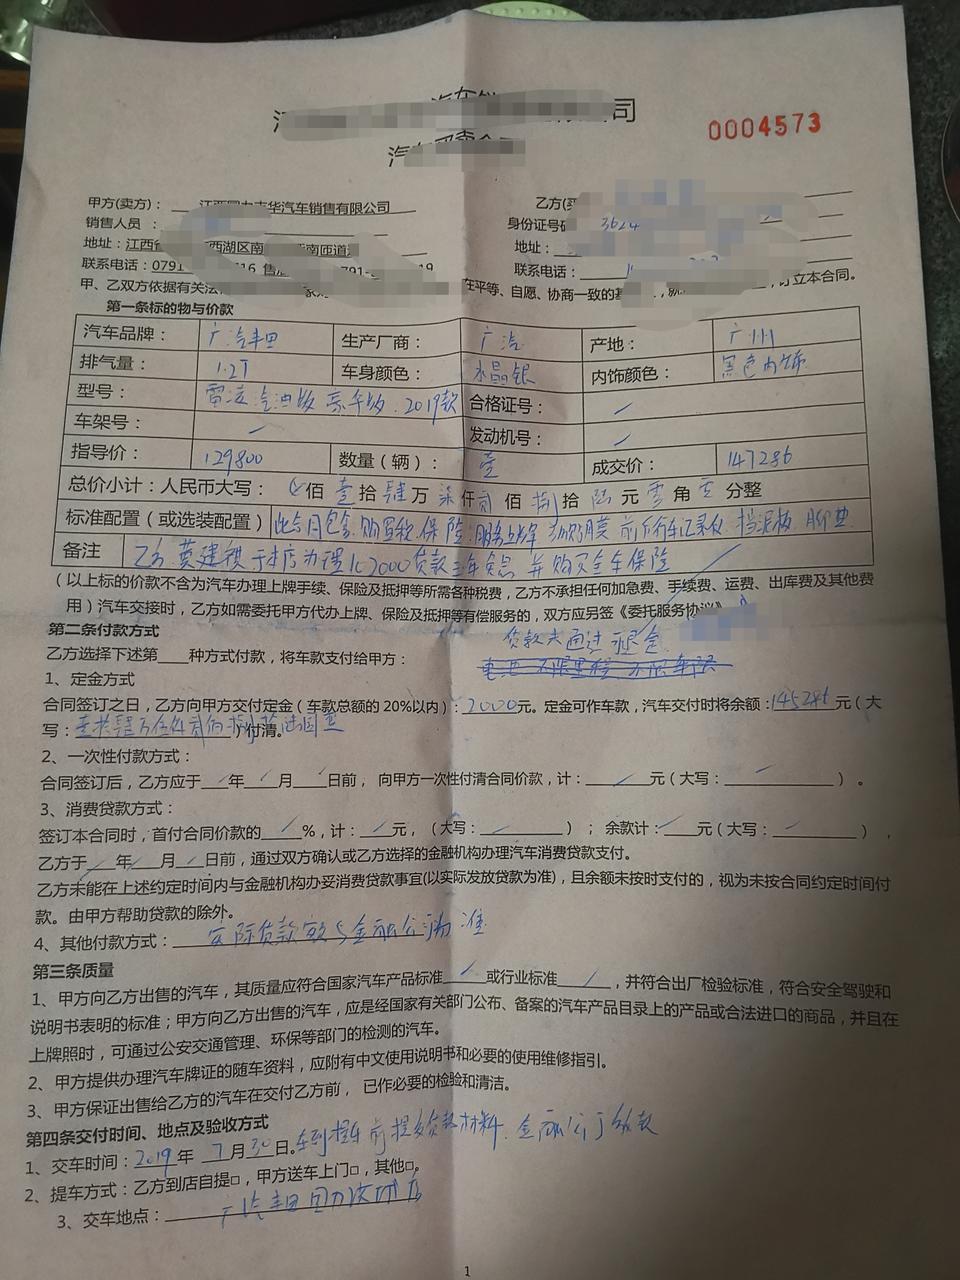 汽车销
司
0004573
汽车买卖合
甲方(卖方)： 华汽车销售有限公司
乙方(买
销售人员：
身份证号码 3624
地址：江西省 西湖区南
地址：
联系电话：0791
联系电话：
甲、乙双方依据有关法 在平等、自愿、协商一致的基 订立本合同。
第一条标的物与价款
汽车品牌： 广汽丰田 生产厂商： 广汽 产地： 广州
排气量： 1.2T 车身颜色： 水晶银 内饰颜色： 黑色内饰
型号： 雷凌汽油版 豪华版 2019款 合格证号： /
车架号： / 发动机号： /
指导价： 129800 数量（辆）： 壹 成交价： 147286
总价小计：人民币大写： 佰 壹 拾 肆 万 柒 仟 贰 佰 捌 拾 陆 元 零 角 零 分整
标准配置（或选装配置） 此合同包含购置税.保险.服务上牌 前后行车记录仪 挡泥板 脚垫
备注 乙方 于本店办理 贷款三年 并购买全车保险
（以上标的价款不含为汽车办理上牌手续、保险及抵押等所需各种税费，乙方不承担任何加急费、手续费、运费、出库费及其他费
用）汽车交接时，乙方如需委托甲方代办上牌、保险及抵押等有偿服务的，双方应另签《委托服务协议》
第二条付款方式 贷款未通过 退定金
乙方选择下述第____种方式付款，将车款支付给甲方：
1、定金方式
合同签订之日，乙方向甲方交付定金（车款总额的20%以内）：2000元。定金可作车款，汽车交付时将余额：145286元（大
写：壹拾肆万伍仟贰佰捌拾陆圆整）付清。
2、一次性付款方式：
合同签订后，乙方应于 / 年 / 月 / 日前， 向甲方一次性付清合同价款，计： / 元（大写： / ）。
3、消费贷款方式：
签订本合同时，首付合同价款的 / %，计： / 元，（大写： / ）； 余款计： / 元（大写： / ），
乙方于 / 年 / 月 / 日前，通过双方确认或乙方选择的金融机构办理汽车消费贷款支付。
乙方未能在上述约定时间内与金融机构办妥消费贷款事宜(以实际发放贷款为准)，且余额未按时支付的，视为未按合同约定时间付
款。由甲方帮助贷款的除外。
4、其他付款方式： 实际贷款额与金融公司为准
第三条质量
1、甲方向乙方出售的汽车，其质量应符合国家汽车产品标准 / 或行业标准 / ，并符合出厂检验标准，符合安全驾驶和
说明书表明的标准；甲方向乙方出售的汽车，应是经国家有关部门公布、备案的汽车产品目录上的产品或合法进口的商品，并且在
上牌照时，可通过公安交通管理、环保等部门的检测的汽车。
2、甲方提供办理汽车牌证的随车资料，应附有中文使用说明书和必要的使用维修指引。
3、甲方保证出售给乙方的汽车在交付乙方前，已作必要的检验和清洁。
第四条交付时间、地点及验收方式
1、交车时间：2019年 7月30日。车到提车前提交贷款材料.金融公司放款
2、提车方式：乙方到店自提□，甲方送车上门□，其他□。
3、交车地点： 广汽丰田 店
1